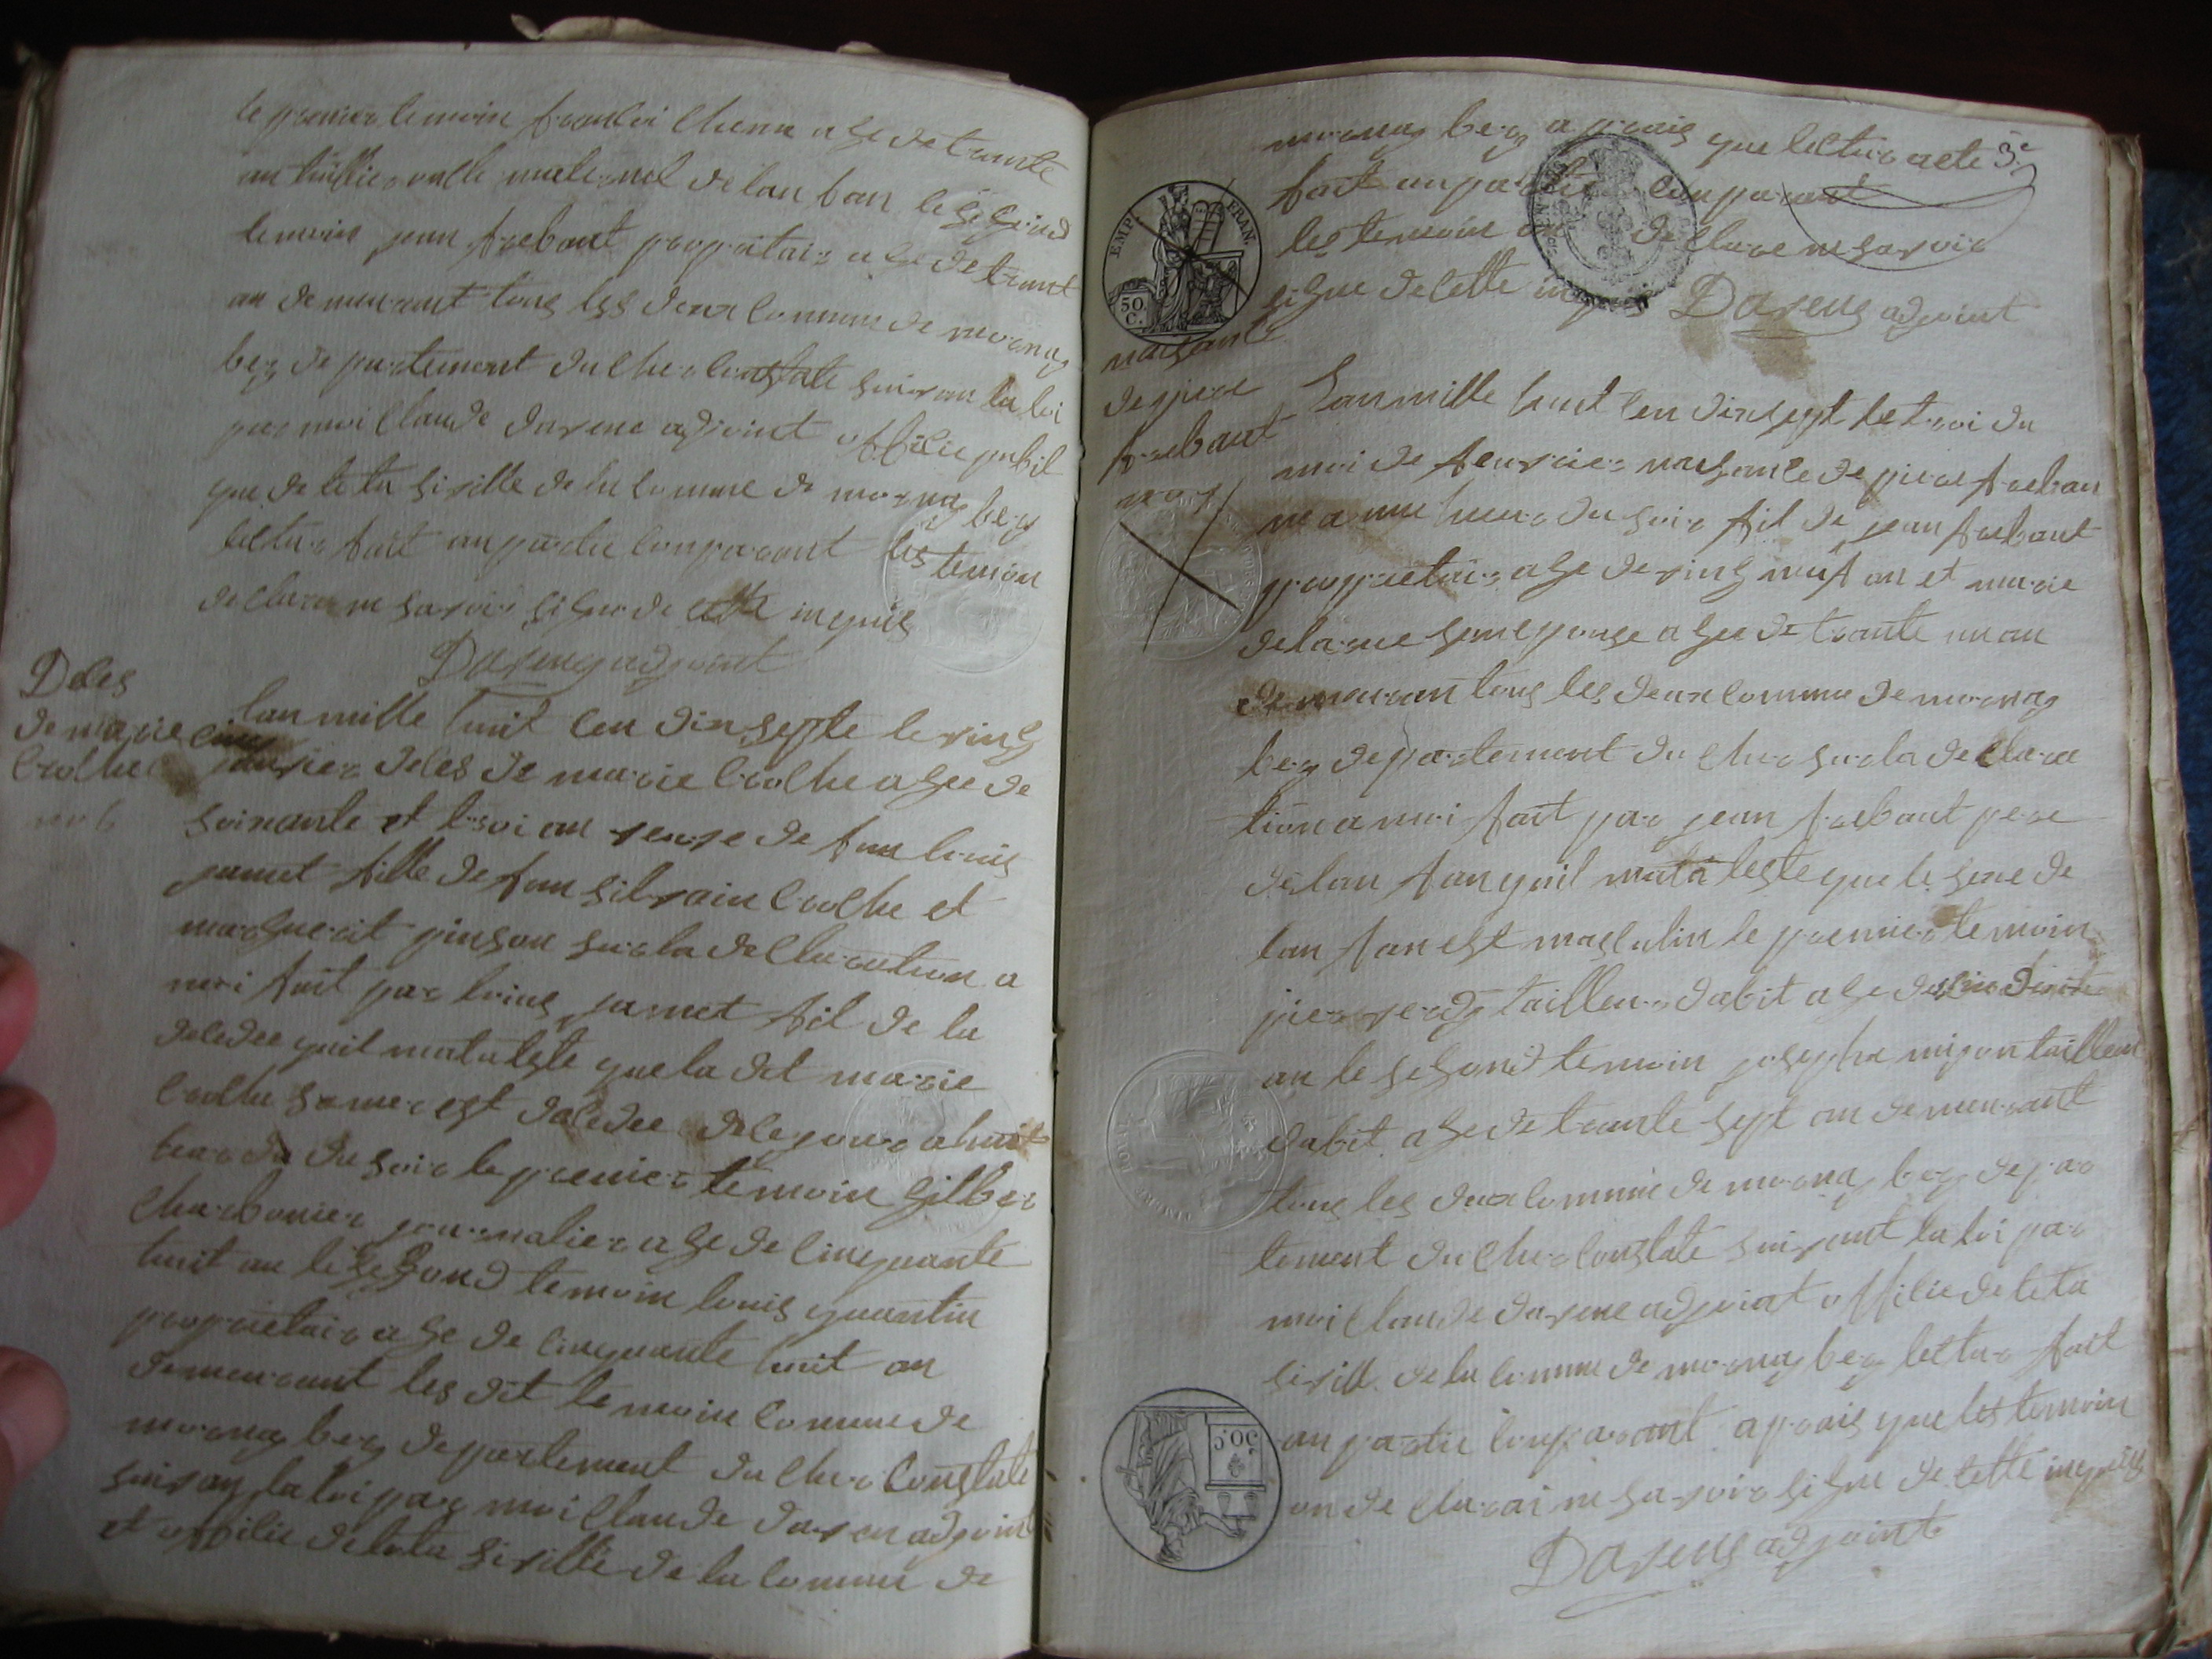 le premier temoin agé de trante
an maternel de lan fan le segond
temoin jean frebaut propritair agé de trant
an demeurant tous les deux commune de mornay
bery departement du cher constate suivan la loi
par moi Claude adjoint offisie publi
que de leta siville de la comune de mornay bery
lectur fait au partie comparant les temoin
declare ne savoir signe de cette inquis
adjoint
Deses
de marie
Croche
no 6
lan mille huit cen dix septe le ving
cinq janvier deses de marie Croche agee de
soixante et troi an veuve de feu louis
jamet fille de feu silvain Croche et
marguerit pinson sur la declaration a
moi fait par louis jamet fil de la
decedee quil mat ateste que la dit marie
Croche sa mere est decedee de ce jour a huit
heur du soir le premier temoin gilber
Charbonier journalier age de cinquante
huit an le segond temoin louis quantin
propriétair age de cinquante huit an
demeurant les dit temoin comune de
mornay bery departement du cher Constate
suivan la loi par moi Claude adjoint
et offisie de leta siville de la comune de
mornay bery aprais que lectur acte 3e
fait au partie comparant
les temoin on declare ne savoir
signe de cette inquis adjoint
EMP. FRAN.
50 C.
naisance
de piere
frebaut
no 7
Lan mille huit cen dix sept le troi du
moi de fevrier naisance de piere frebau
ne a une heure du soir fil de jean frebaut
propriétair age de ving neuf an et marie
delarue son epouse agee de trante un an
demeuran tous les deux commune de mornay
bery departement du cher sur la declara
tion a moi fait par jean frebaut pere
de lan fan quil mat a teste que le sexe de
lan fan est masculin le premier temoin
pier verdy tailleur dabit age de
an le segond temoin joseph migon tailleur
dabit age de trante sept an demeurant
tous les deux commune de mornay bery depar
tement du cher constate suivant la loi par
moi Claude adjoint offisie de leta
sivill de la comune de mornay bery lectur fait
au partie comparant aprais que les temoin
on declarai ne savoir signe de cette inquis
adjoint
50.C